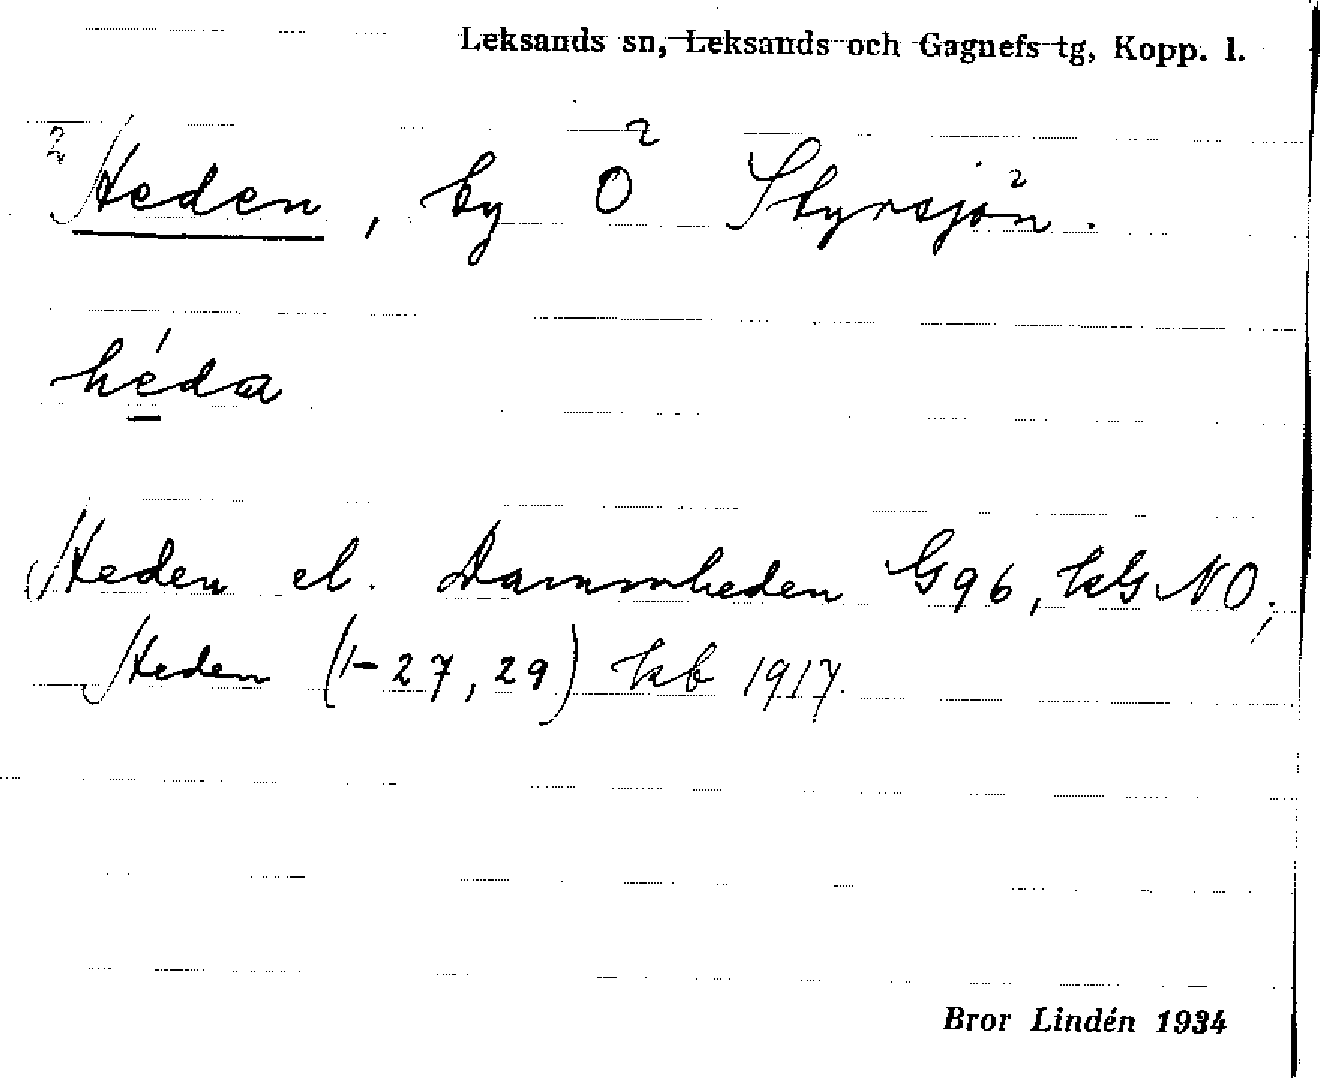 Leksands sn, Leksands och Gagnefs tg, Kopp. l.
2 Heden, by Ö Styrsjön.
héda
Heden el. Dammheden G96, kG NO;
Heden (1-27, 29) kb 1917.
Bror Lindén 1934